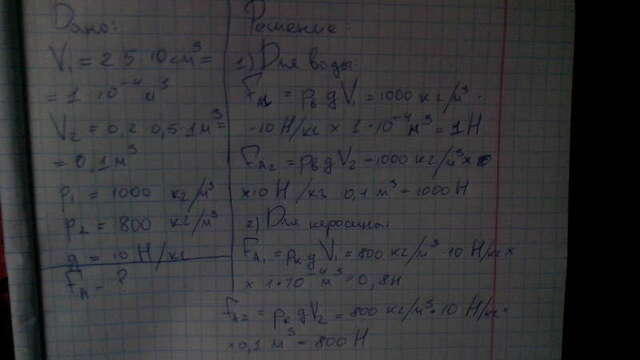 Дано:
V₁ = 2·5·10 см³ =
= 1·10⁻⁴ м³
V₂ = 0,2·0,5·1 м³ =
= 0,1 м³
ρ₁ = 1000 кг/м³
ρ₂ = 800 кг/м³
g = 10 Н/кг
F_A - ?
Решение:
1) Для воды:
F_A₁ = ρ_в g V₁ = 1000 кг/м³ ·
· 10 Н/кг × 1·10⁻⁴ м³ = 1 Н
F_A₂ = ρ_в g V₂ = 1000 кг/м³ ×
× 10 Н/кг · 0,1 м³ = 1000 Н
2) Для керосина
F_A₁ = ρ_к g V₁ = 800 кг/м³ · 10 Н/кг ×
× 1·10⁻⁴ м³ = 0,8 Н
F_A₂ = ρ_к g V₂ = 800 кг/м³ · 10 Н/кг ·
· 0,1 м³ = 800 Н